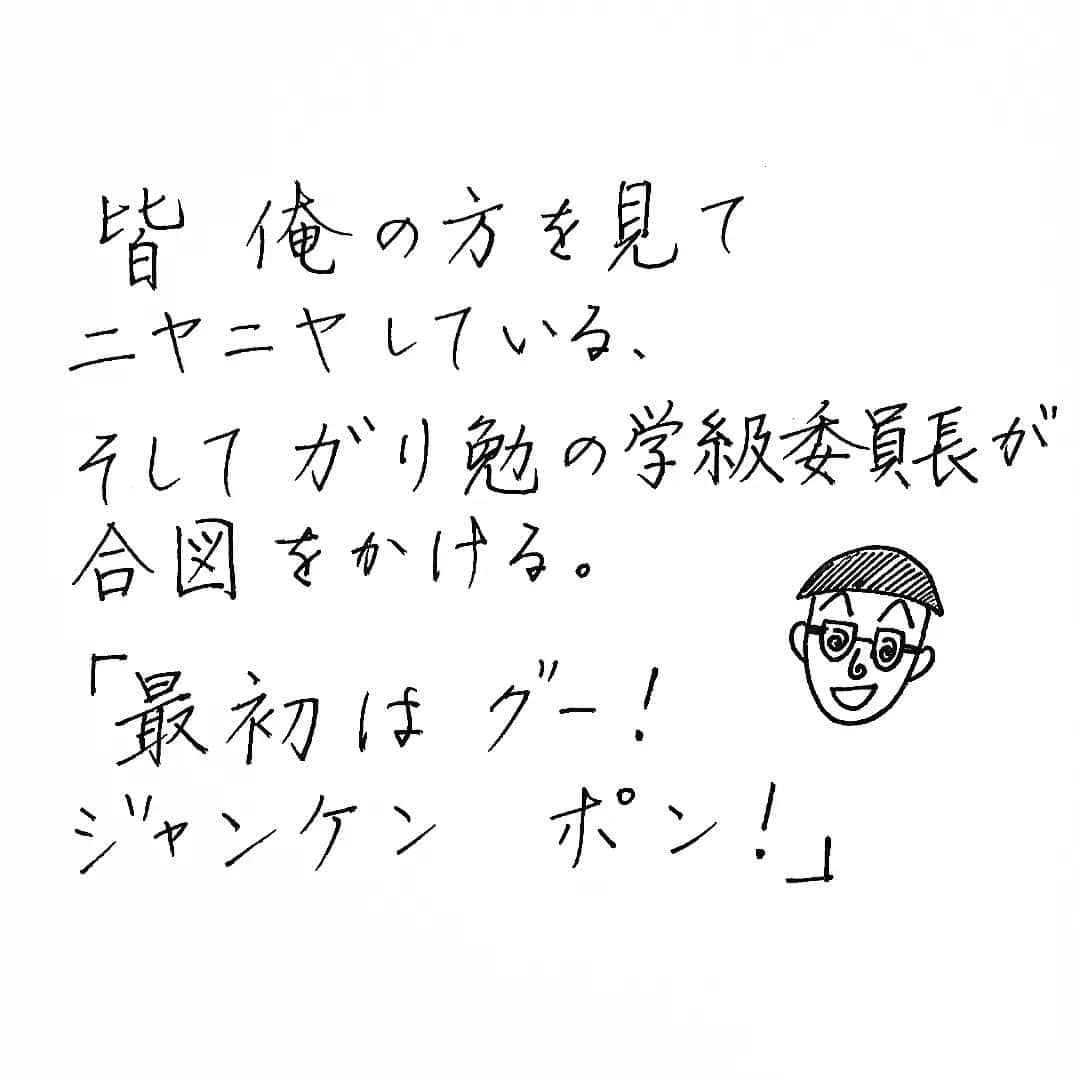 皆 俺の方を見て
ニヤニヤしている、
そして ガリ勉の学級委員長が
合図をかける。
「最初は グー!
ジャンケン ポン!」